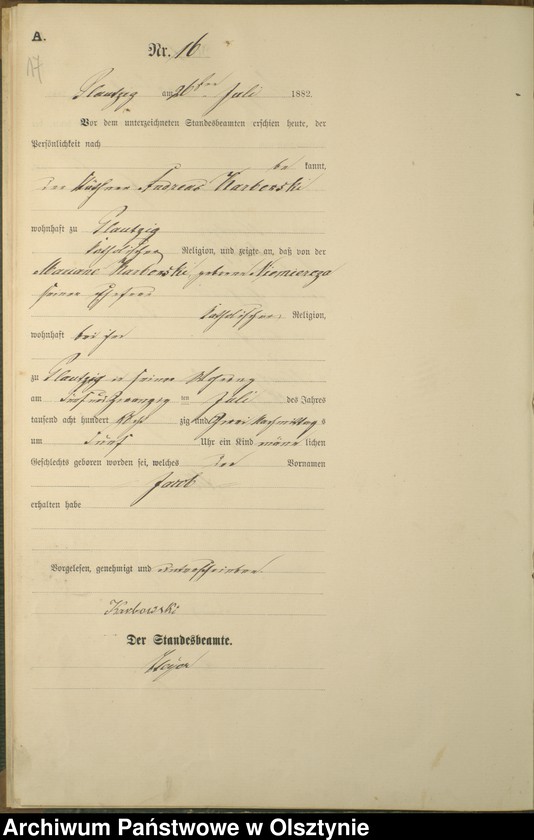 A.
17
Nr. 16
Plautzig am 26ten Juli 1882.
Vor dem unterzeichneten Standesbeamten erschien heute, der
Persönlichkeit nach
be kannt,
der Andreas Karbowski
wohnhaft zu Plautzig
katholischer Religion, und zeigte an, daß von der
Mariane Karbowski, geborne
seiner Ehefrau
katholischer Religion,
wohnhaft bei ihm
zu Plautzig in seiner Wohnung
am fünfundzwanzig ten Juli des Jahres
tausend acht hundert acht zig und zwei Nachmittag s
um fünf Uhr ein Kind männ lichen
Geschlechts geboren worden sei, welches den Vornamen
Jacob
erhalten habe
Vorgelesen, genehmigt und unterschrieben
Karbowski
Der Standesbeamte.
Archiwum Państwowe w Olsztynie